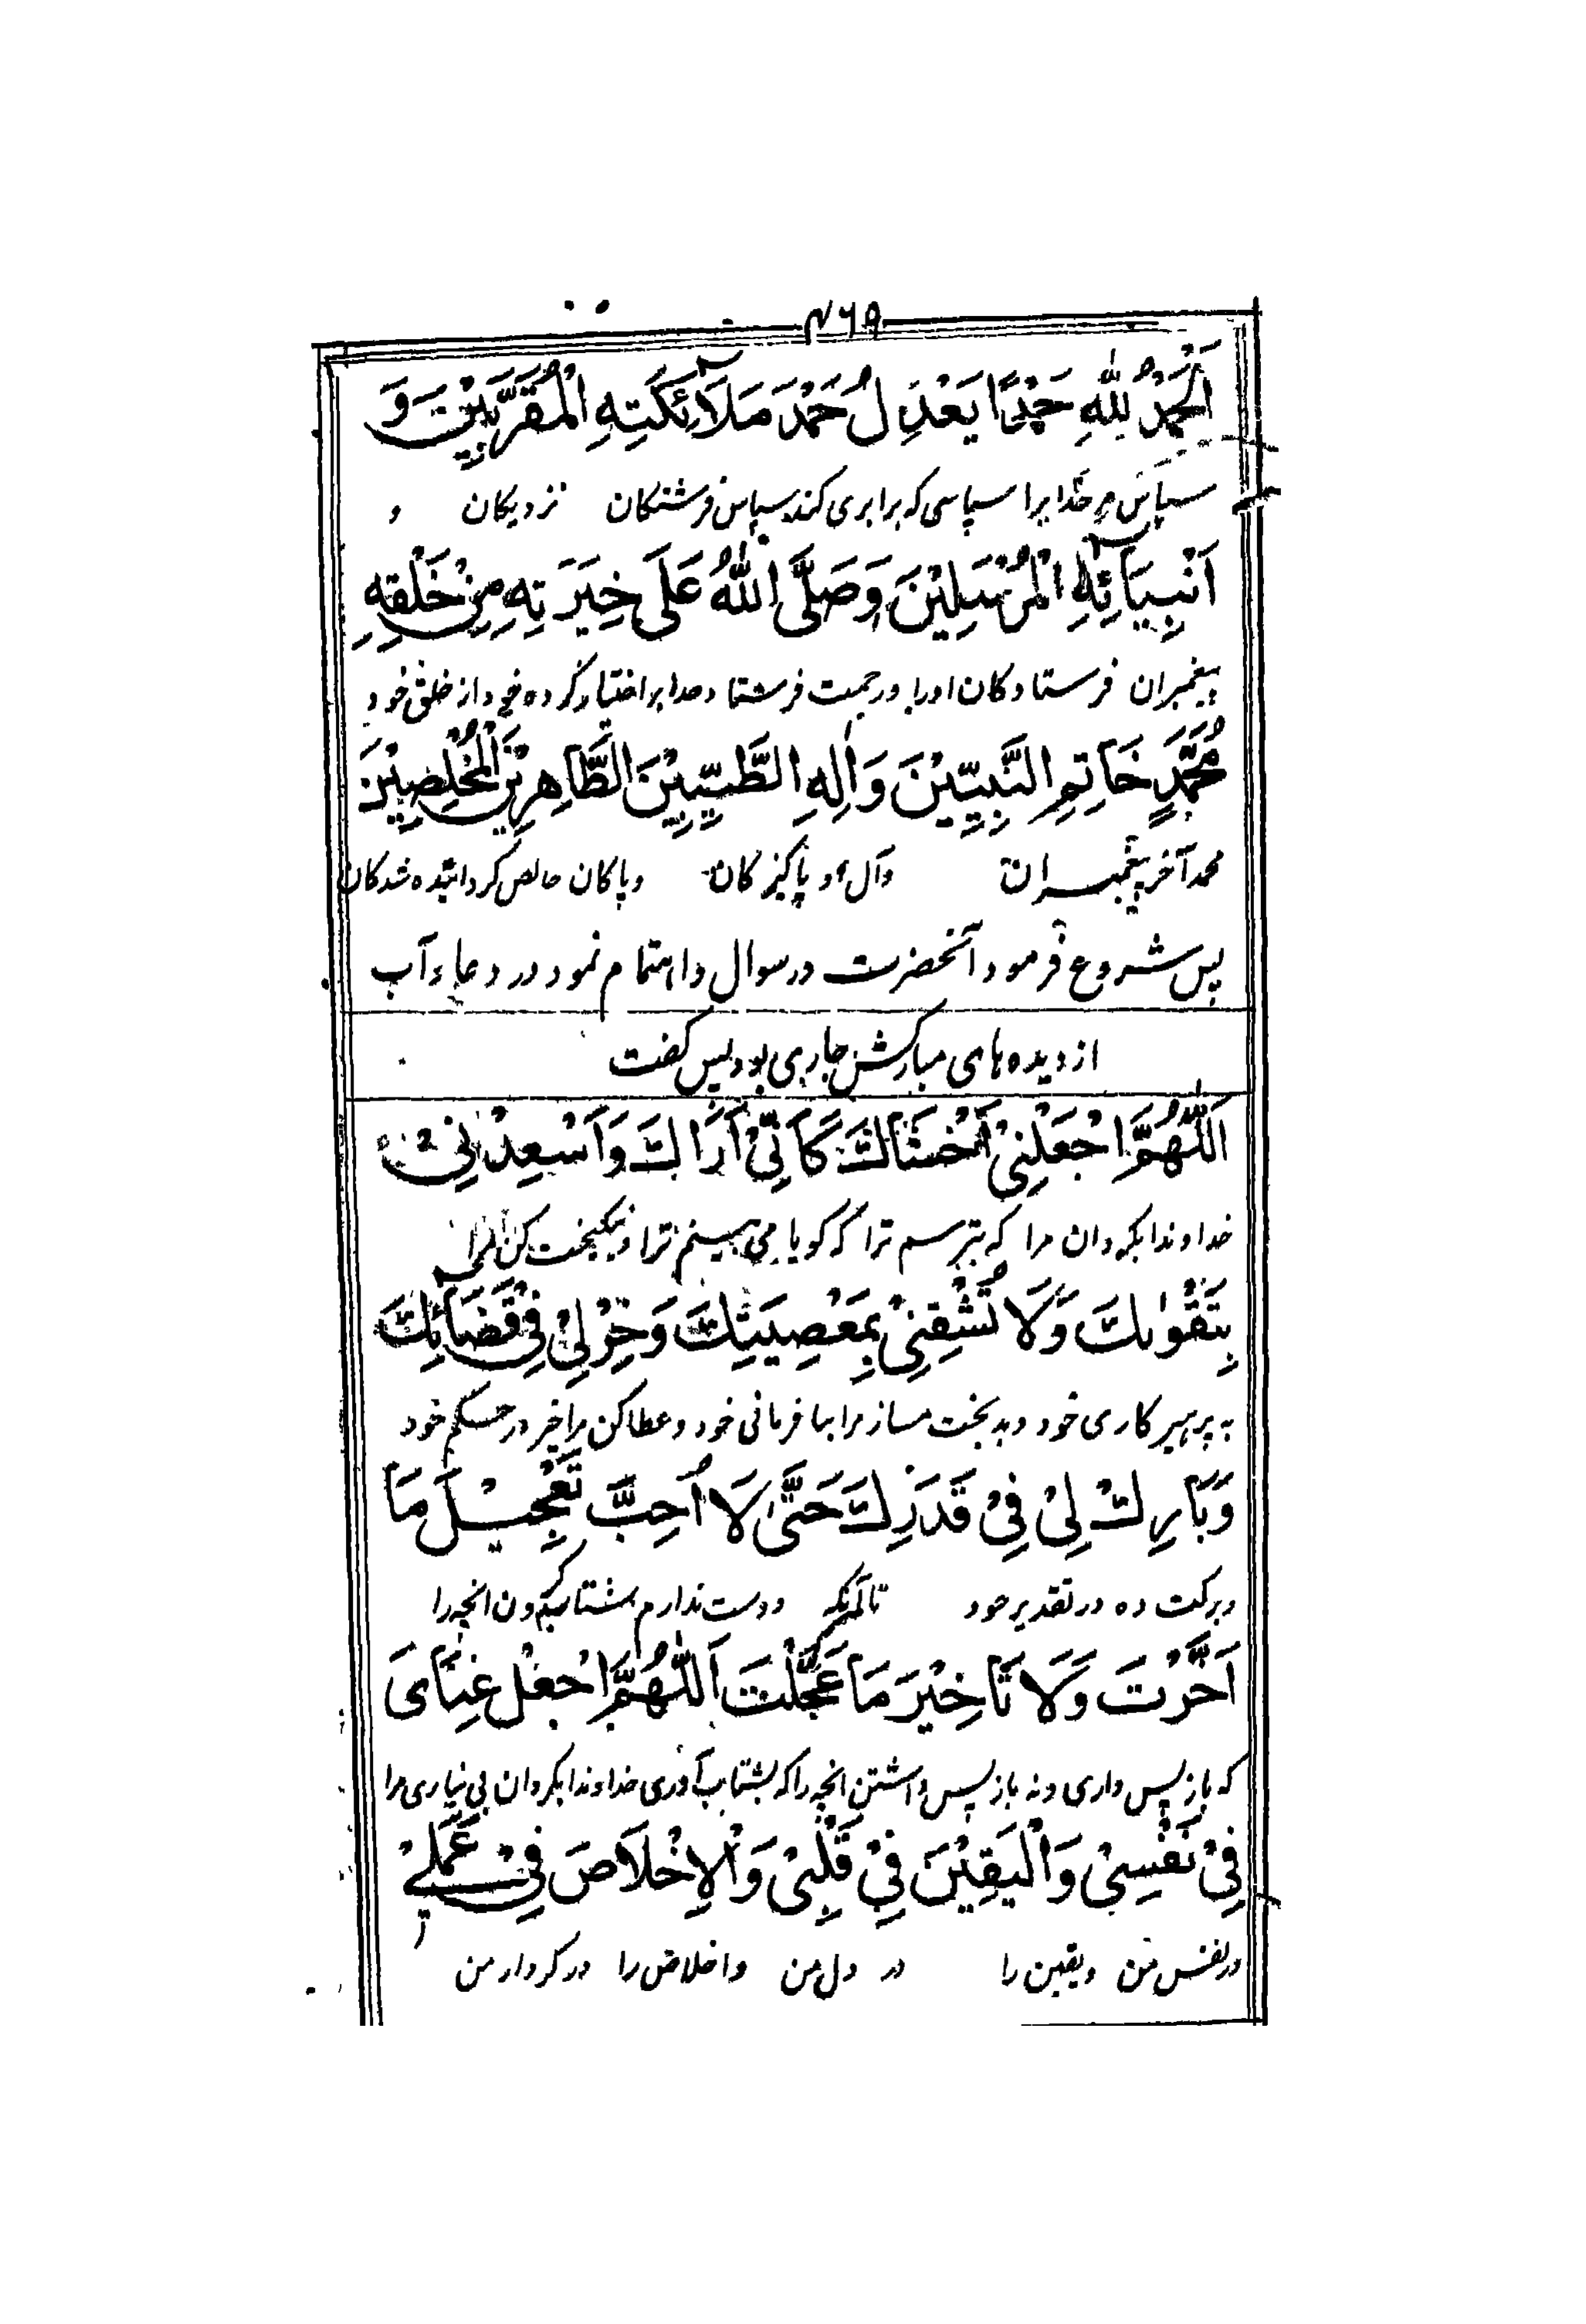 ۴۶۹
اَلْحَمْدُ لِلّٰهِ حَمْدًا يَعْدِلُ حَمْدَ مَلَآئِكَتِهِ الْمُقَرَّبِيْنَ وَ
سپاس مر خدایرا سپاسی که برابری کند سپاس فرشتکان نزدیکان و
اَنْبِيَآئِهِ الْمُرْسَلِيْنَ وَصَلَّى اللّٰهُ عَلَى خِيَرَتِهِ مِنْ خَلْقِهِ
پیغمبران فرستادکان اورا ورحمت فرستاد خدا بر اختیار کرده خود از خلق خود
مُحَمَّدٍ خَاتِمِ النَّبِيّيْنَ وَاٰلِهِ الطَّيِّبِيْنَ الطَّاهِرِيْنَ الْمُخْلَصِيْنَ
محمد آخر پیغمبران وآل او پاکیزکان وپاکان خالص کردانیده شدکان
پس شروع فرمود آنحضرت در سوال واهتمام نمود در دعاء وآب
از دیده های مبارکش جاری بود پس کفت
اَللّٰهُمَّ اجْعَلْنِيْ اَخْشَاكَ كَاَنِّيْ اَرَاكَ وَاَسْعِدْنِيْ
خداوندا بکردان مرا که بترسم ترا که کویا می بینم ترا ونیکبخت کن مرا
بِتَقْوٰىكَ وَلَا تُشْقِنِيْ بِمَعْصِيَتِكَ وَخِرْلِيْ فِيْ قَضَآئِكَ
به پرهیزکاری خود وبدبخت مساز مرا بنا فرمانی خود وعطا کن مرا خیر در حکم خود
وَبَارِكْ لِيْ فِيْ قَدَرِكَ حَتَّى لَا اُحِبَّ تَعْجِيْلَ مَا
وبرکت ده در تقدیر خود تا آنکه دوست ندارم شتاب کردن انچه را
اَخَّرْتَ وَلَا تَاخِيْرَ مَا عَجَّلْتَ اَللّٰهُمَّ اجْعَلْ غِنَاىَ
که باز پس داری ونه باز پس داشتن انچه را که بشتاب آوری خداوندا بکردان بی نیازی مرا
فِيْ نَفْسِيْ وَالْيَقِيْنَ فِيْ قَلْبِيْ وَالْاِخْلَاصَ فِيْ عَمَلِيْ
در نفس من ویقین را در دل من واخلاص را در کردار من